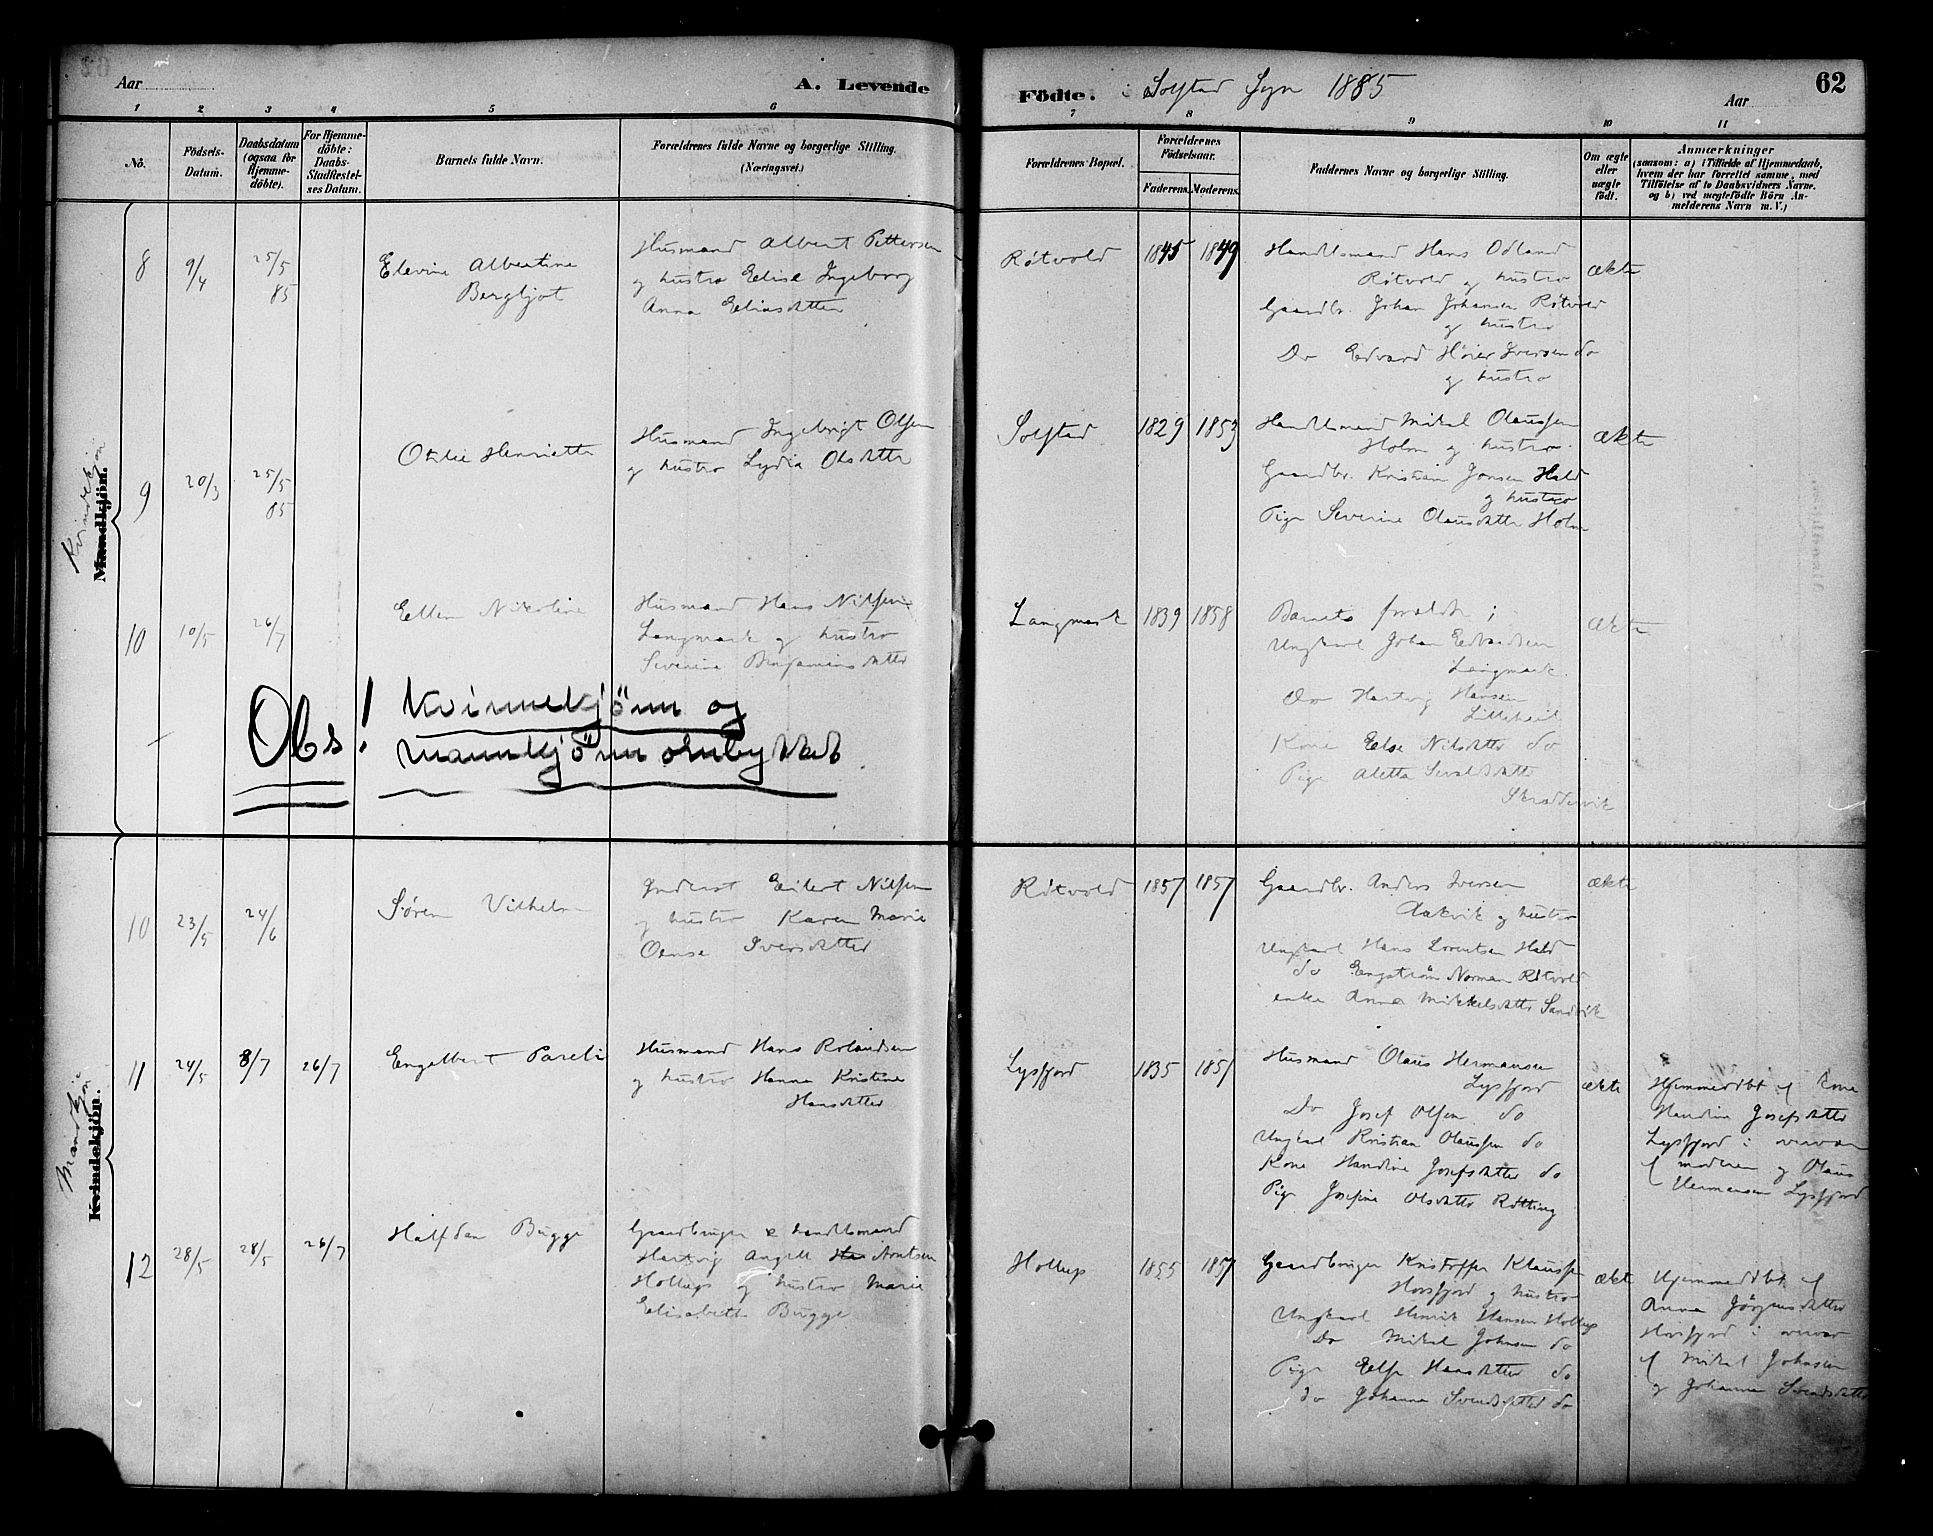 Aar
A. Levende
Födte.
i Solstad Sogn 1885
Aar
62
1 2 3 4 5 6 7 8 9 10 11
Nô.
Födsels-
Datum.
Daabsdatum
(ogsaa for
Hjemme-
döbte).
For Hjemme-
döbte:
Daabs-
Stadfæstel-
ses Datum.
Barnets fulde Navn.
Forældrenes fulde Navne og borgerlige Stilling.
(Næringsvei.)
Forældrenes Bopæl.
Forældrenes
Födselsaar.
Faderens. Moderens.
Faddernes Navne og borgerlige Stilling.
Om ægte
eller
uægte
födt.
Anmærkninger
(saasom: a) i Tilfælde af Hjemmedaab,
hvem der har forrettet samme, med
Tilföielse af to Daabsvidners Navne,
og b) ved uægtefödte Börn An-
melderens Navn m. V.)
Kvindekjön
Mandkjön.
8
9/4
25/5
85
Elevine Albertine
Bergljot
Husmand Albert Pettersen
og hustro Elise Ingeborg
Anna Eliasdatter
Røtvold
1845
1849
Handelsmand Hans Odland
Røtvold og hustro
Gaardbr. Johan Johansen Røtvold
og hustro
Do Edvard Høier Iversen do
og hustro
ækte
9
20/3
25/5
85
Otilie Henriette
Husmand Ingebrigt Olsen
og hustro Lydia Olsdatter
Solstad
1829
1853
Handelsmand Mikal Olaussen
Holm og hustro
Gaardbr. Kristian Jonsen Hald
og hustro
Pige Severine Olausdatter Holm
ækte
10
10/5
26/7
Ellen Nikoline
Husmand Hans Nilsen
Langmark og hustro
Severine Benjaminsdatter
Langmark
1839
1858
Barnets forældre;
Ungkarl Johan Edvardsen
Langmark
Do Hartvig Hansen
Kone Else Nilsdatter do
Pige Aletta Sivaldsdatter
ækte
Obs! Kvinnekjönn og
mannkjönn ombyttet
Mandkjön
Kvindekjön.
10
23/5
24/6
Søren Vilhelm
Inderst Eilert Nilsen
og hustro Karen Marie
Olense Iversdatter
Røtvold
1857
1857
Gaardbr. Anders Iversen
Aakvik og hustro
Ungkarl Hans Lorentsen Hald
do Engström Norman Røtvold
enke Anne Mikkelsdatter Sandvik
ækte
11
24/5
8/7
26/7
Engelbert Pareli
Husmand Hans Rolandsen
og hustro Hanna Kristine
Hansdatter
Lysfjord
1835
1851
Husmand Olaus Hermansen
Lysfjord
Do Josef Olsen do
Ungkarl Kristian Olaussen do
Kone Handine Josefsdatter do
Pige Josefine Olsdatter Røtting
ækte
Hjemmedøbt af Kone
Handine Josefsdatter
Lysfjord i overvær
af moderen og Olaus
Hermansen Lysfjord
12
28/5
28/5
26/7
Halfdan Bugge
Gaardbruger & handelsmand
Hartvig Angell Arntsen
Hollup og hustro Marie
Elisabeth Bugge
Hollup
1855
1857
Gaardbruger Kristoffer Klaussen
Horsfjord og hustro
Ungkarl Henrik Hansen Hollup
Do Mikal Johnsen do
Pige Else Hansdatter do
do Johanna Svendsdatter do
ækte
Hjemmedøbt af
Anna Jörgensdatter
Horsfjord i overvær
af Mikal Johnsen
og Johanna Svendsdatter